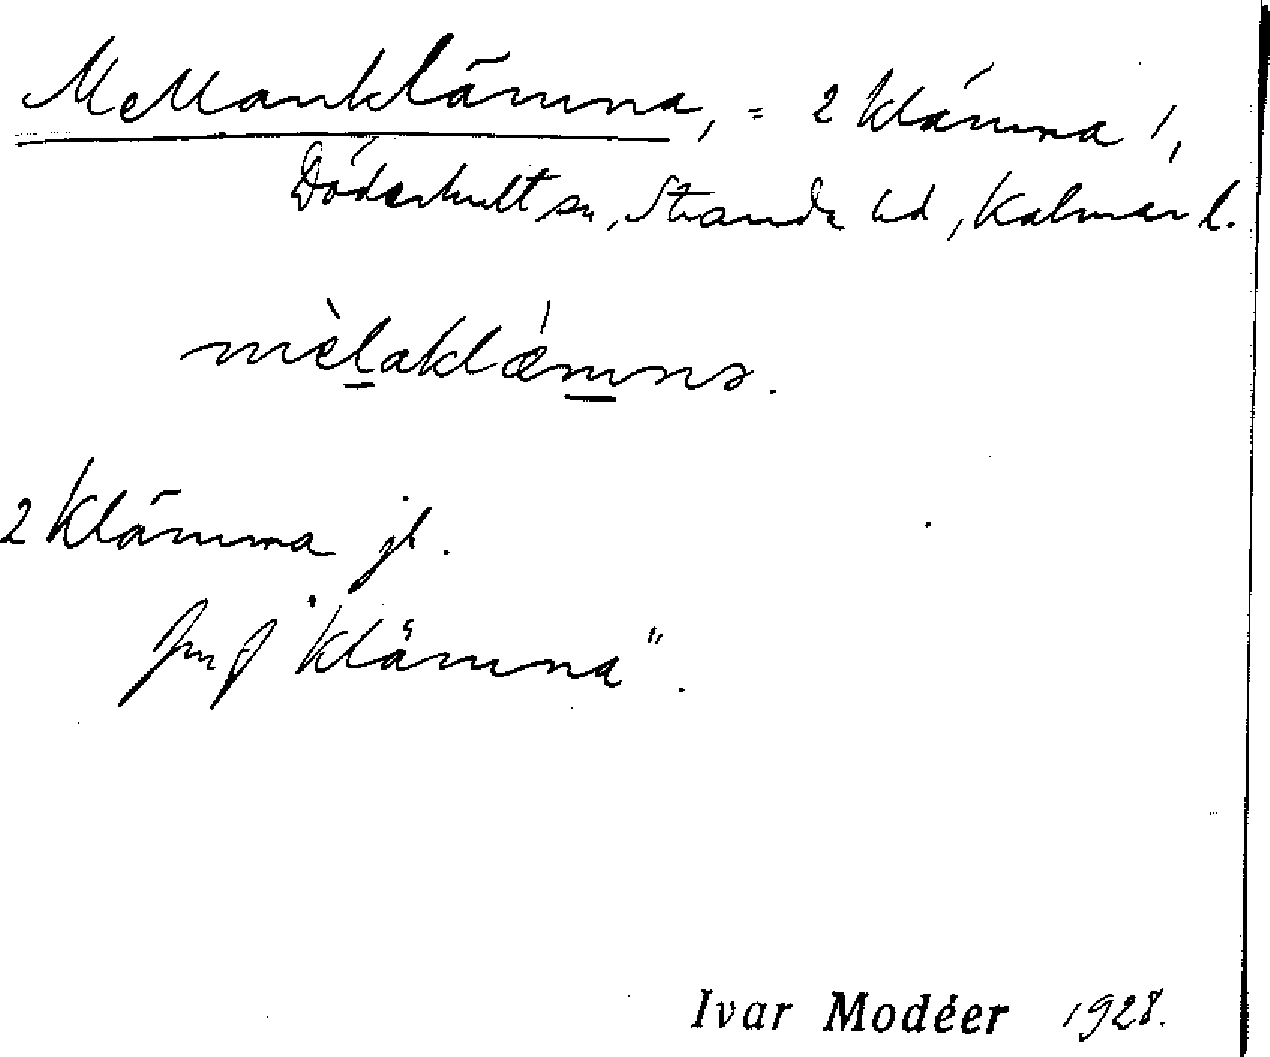 Mellanklämma, = 2 klämma 1,
Döderhult sn, Stranda hd, Kalmar l.
mèlaklæ̀mna.
2 klämma jl.
Jmf "klämma".
Ivar Modéer 1928.